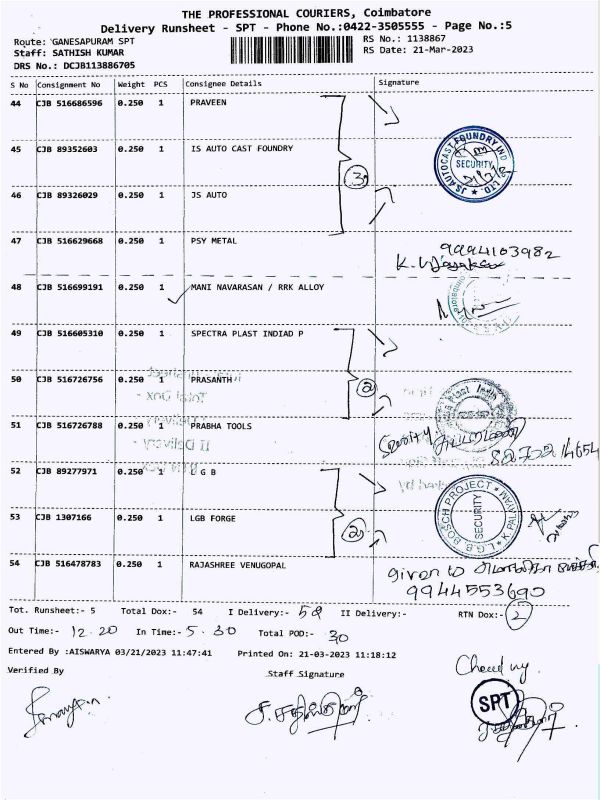 THE PROFESSIONAL COURIERS, Coimbatore
Delivery Runsheet - SPT - Phone No.:0422-3505555 - Page No.:5
Route: GANESAPURAM SPT
RS No.: 1138867
Staff: SATHISH KUMAR
RS Date: 21-Mar-2023
DRS No.: DCJB113886705
S No Consignment No Weight PCS Consignee Details Signature
44 CJB 516686596 0.250 1 PRAVEEN
45 CJB 89352603 0.250 1 IS AUTO CAST FOUNDRY
JS AUTOCAST FOUNDRY IND LTD.
SECURITY
3
46 CJB 89326029 0.250 1 JS AUTO
47 CJB 516629668 0.250 1 PSY METAL
9994103982
48 CJB 516699191 0.250 1 MANI NAVARASAN / RRK ALLOY
49 CJB 516605310 0.250 1 SPECTRA PLAST INDIAD P
50 CJB 516726756 0.250 1 PRASANTH
2
51 CJB 516726788 0.250 1 PRABHA TOOLS
52 CJB 89277971 0.250 1 L G B
53 CJB 1307166 0.250 1 LGB FORGE
2
L.G.B. BOSCH PROJECT
SECURITY
54 CJB 516478783 0.250 1 RAJASHREE VENUGOPAL
given to
9944553690
Tot. Runsheet:- 5 Total Dox:- 54 I Delivery:- 52 II Delivery:- RTN Dox:- 2
Out Time:- 12.20 In Time:- 5.30 Total POD:- 30
Entered By :AISWARYA 03/21/2023 11:47:41 Printed On: 21-03-2023 11:18:12
Verified By Staff Signature
SPT